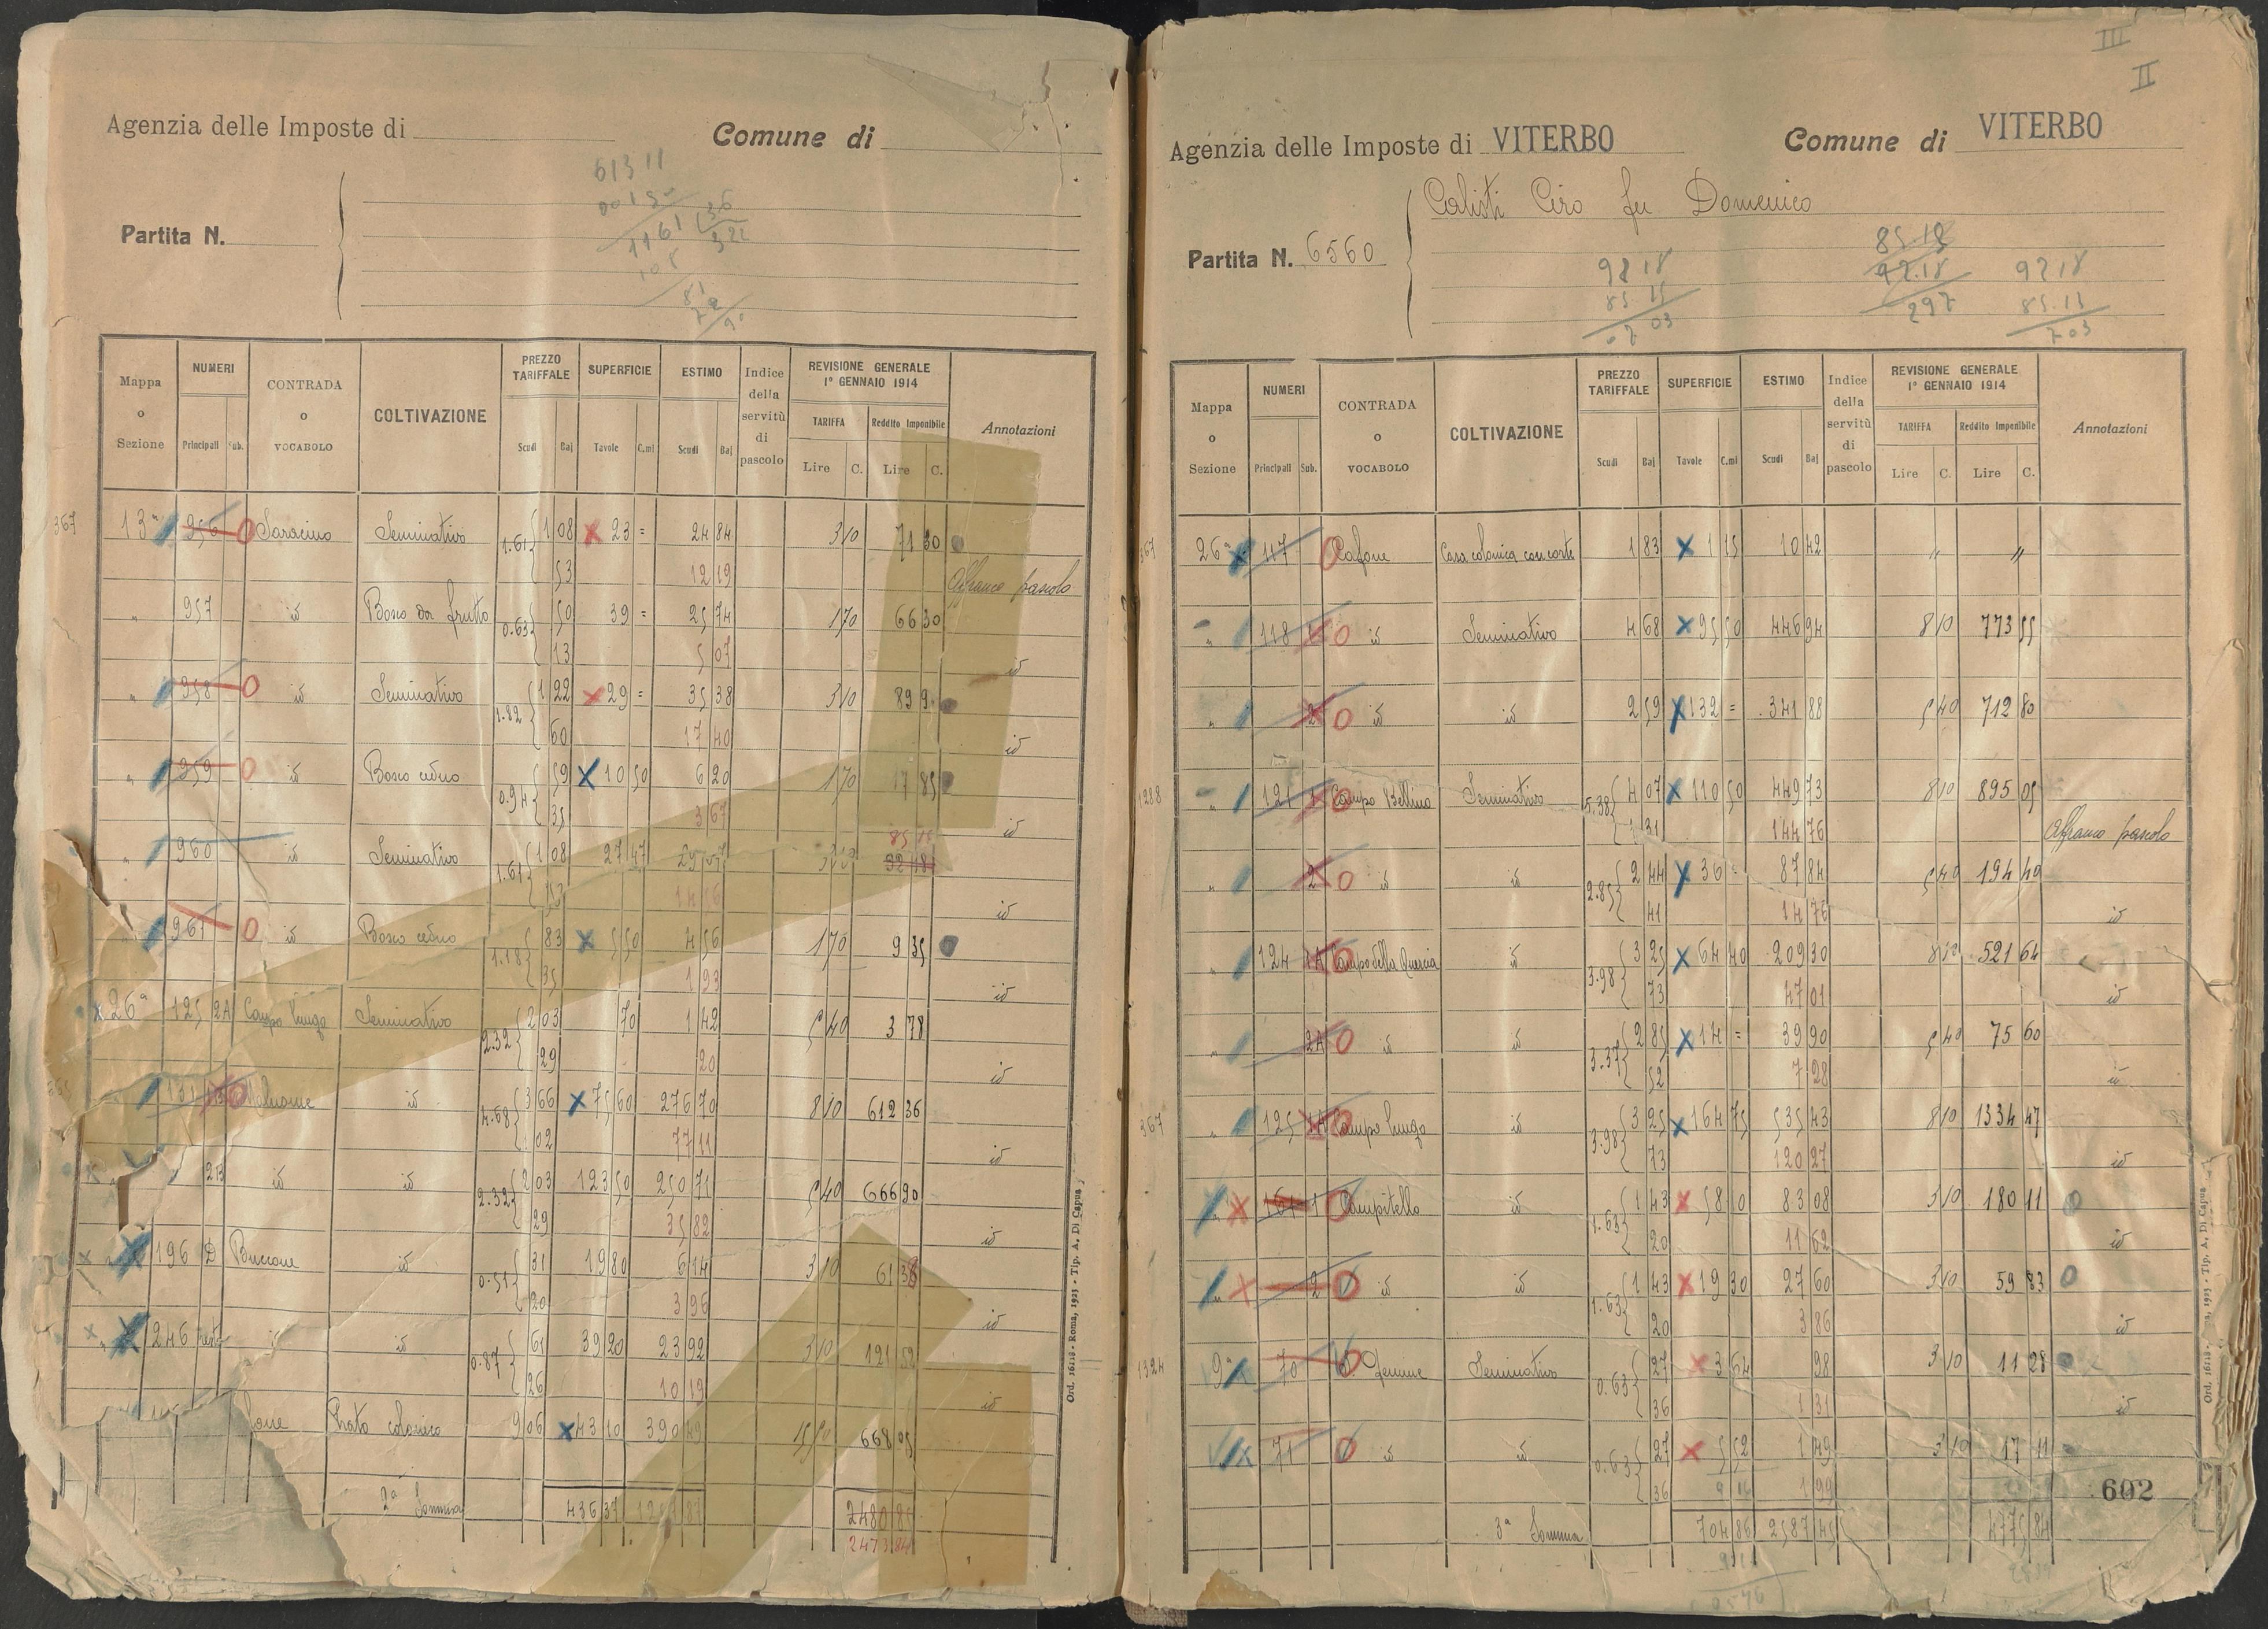 Agenzia delle Imposte di
Comune di
61311
Partita N.
Mappa o Sezione
NUMERI
Principali Sub.
CONTRADA o VOCABOLO
COLTIVAZIONE
PREZZO TARIFFALE
Scudi Baj
SUPERFICIE
Tavole C.mi
ESTIMO
Scudi Baj
Indice della servitù di pascolo
REVISIONE GENERALE 1° GENNAIO 1914
TARIFFA
Lire C.
Reddito Imponibile
Lire C.
Annotazioni
367 13ª 956 Saracino Seminativo 1.61 1 08 23 = 24 84 3 10 71 30
53 12 19 Affranco pascolo
" 957 id Bosco da frutto 0.63 50 39 = 25 74 1 70 66 30
13 5 07 id
" 958 id Seminativo 1.82 1 22 29 = 35 38 3 10 89 90
60 17 40 id
" 959 id Bosco ceduo 0.94 59 10 50 6 20 1 70 17 85
35 3 67 id
85 15
" 960 id Seminativo 1.61 1 08 27 47 3 10
53 id
961 id Bosco ceduo 1.18 83 5 50 4 56 1 70 9 35
35 1 93 id
26ª 125 2A Campo lungo Seminativo 2.32 2 03 70 1 42 5 40 3 78
29 20 id
131 id 4.68 3 66 75 60 276 70 8 10 612 36
1 02 77 11 id
2B id id 2.32 2 03 123 50 250 71 5 40 666 90
29 35 82 id
196 D Buccone id 0.51 31 19 80 6 14 3 10 61 38
20 3 96 id
246 resto id id 0.87 61 39 20 23 92 3 10 121 52
26 10 19 id
Prato colonico 9 06 43 10 390 49 15 50 668 05
2ª Somma 436 37 2480 85
2473 84
Ord. 16118 - Roma, 1923 - Tip. A. Di Capua
III
II
Agenzia delle Imposte di VITERBO
Comune di VITERBO
Calisti Ciro fu Domenico
Partita N. 6560
92 18
85 15
92.18
297
92 18
85.15
7 03
Mappa o Sezione
NUMERI
Principali Sub.
CONTRADA o VOCABOLO
COLTIVAZIONE
PREZZO TARIFFALE
Scudi Baj
SUPERFICIE
Tavole C.mi
ESTIMO
Scudi Baj
Indice della servitù di pascolo
REVISIONE GENERALE 1° GENNAIO 1914
TARIFFA
Lire C.
Reddito Imponibile
Lire C.
Annotazioni
367 26ª 117 Cafone Casa colonica con corte 1 83 1 15 10 42 " "
" 118 1 id Seminativo 4 68 95 50 446 94 8 10 773 55
" 2 id id 2 59 132 = 341 88 5 40 712 80
1288 " 121 1 Campo Bellino Seminativo 5.38 4 07 110 50 449 73 8 10 895 05
1 31 144 76 Affranco pascolo
" 2 id id 2.85 2 44 36 = 87 84 5 40 194 40
41 14 76 id
" 124 1A Campo della Quercia id 3.98 3 25 64 40 209 30 8 10 521 64
73 47 01 id
" 2A id id 3.37 2 85 14 = 39 90 5 40 75 60
52 7 28 id
367 " 125 1A Campo lungo id 3.98 3 25 164 75 535 43 8 10 1334 47
73 120 27 id
" 161 1 Campitello id 1.63 1 43 58 10 83 08 3 10 180 11
20 11 62 id
" 2 id id 1.63 1 43 19 30 27 60 3 10 59 83
20 3 86 id
1324 9ª 70 Seminativo 0.63 27 3 64 98 3 10 11 28
36 1 31 id
71 id id 0.63 27 5 52 1 49 3 10 17 11
36 1 99
602
3ª Somma 704 86 2587 45 4775 84
Tip. A. Di Capua